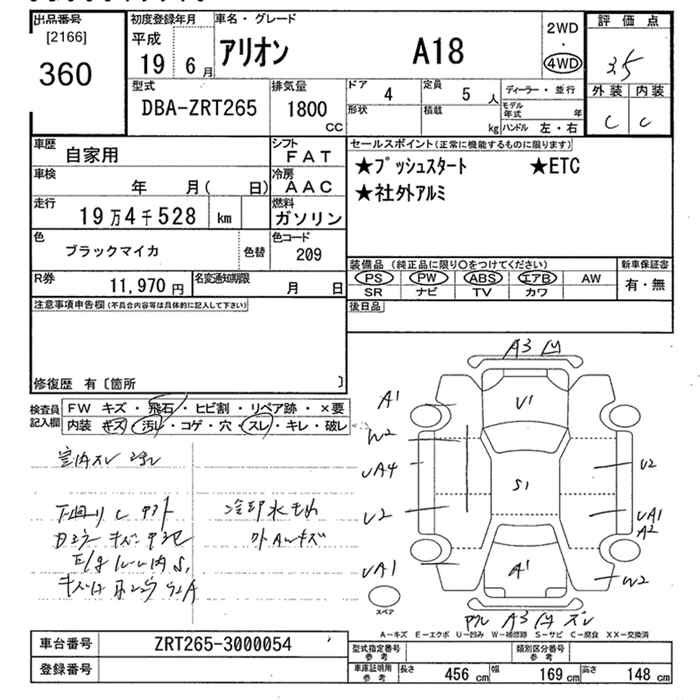 出品番号 初度登録年月 車名・グレード 評価点
[2166] 平成 アリオン A18 2WD ・ 4WD 3.5
360 19 6月 外装 内装
型式 排気量 ドア 4 定員 5人 ディーラー・並行 C C
DBA-ZRT265 1800cc 形状 積載 kg モデル年式 年
ハンドル 左・右
車歴 自家用 シフト FAT セールスポイント(正常に機能するものに限ります)
車検 年 月( 日) 冷房 AAC ★プッシュスタート ★ETC
走行 19万4千528 km 燃料 ガソリン ★社外アルミ
色 ブラックマイカ 色替 色コード 209
R券 11,970円 名変通知期限 月 日
装備品 (純正品に限り○をつけてください) 新車保証書
PS PW ABS エアB AW 有・無
SR ナビ TV カワ
注意事項申告欄(不具合内容等は具体的に記入して下さい) 後日品
修復歴 有〔箇所 〕
検査員記入欄 FW キズ・飛石・ヒビ割・リペア跡・×要
内装 キズ・汚レ・コゲ・穴・スレ・キレ・破レ
A3 凹
A1 U1
W2
UA4 U2
S1
U2 UA1
A2
UA1 A1 W2
スペア
A3
室内スレ
下廻り
冷却水
A-キズ E-エクボ U-凹み W-補修跡 S-サビ C-腐食 XX-交換済
車台番号 ZRT265-3000054 型式指定番号 参考 類別区分番号 参考
登録番号 車庫証明用 参考 長さ 456cm 幅 169cm 高さ 148cm